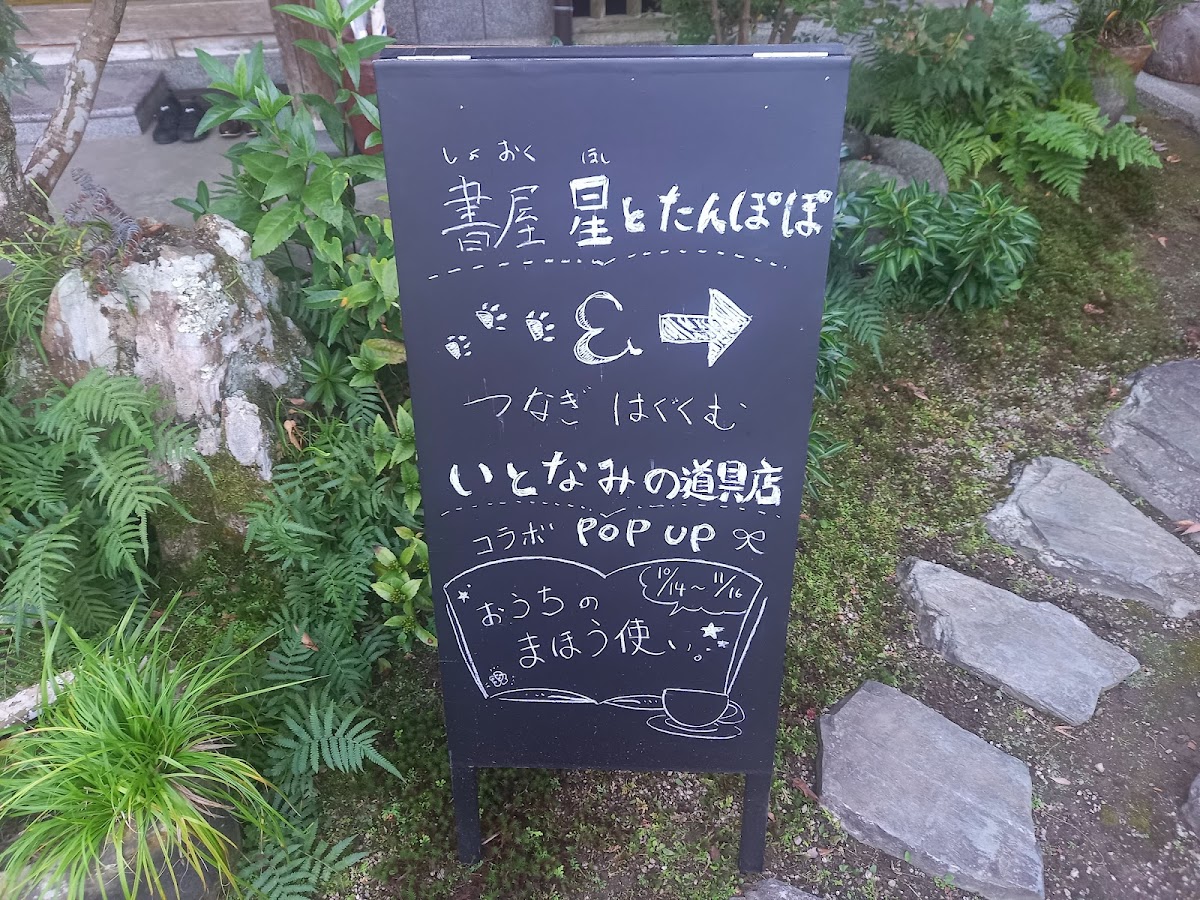 しょおく ほし
書屋 星とたんぽぽ
&
つなぎ はぐくむ
いとなみの道具店
コラボ POP UP
10/14～11/16
おうちの
まほう使い。